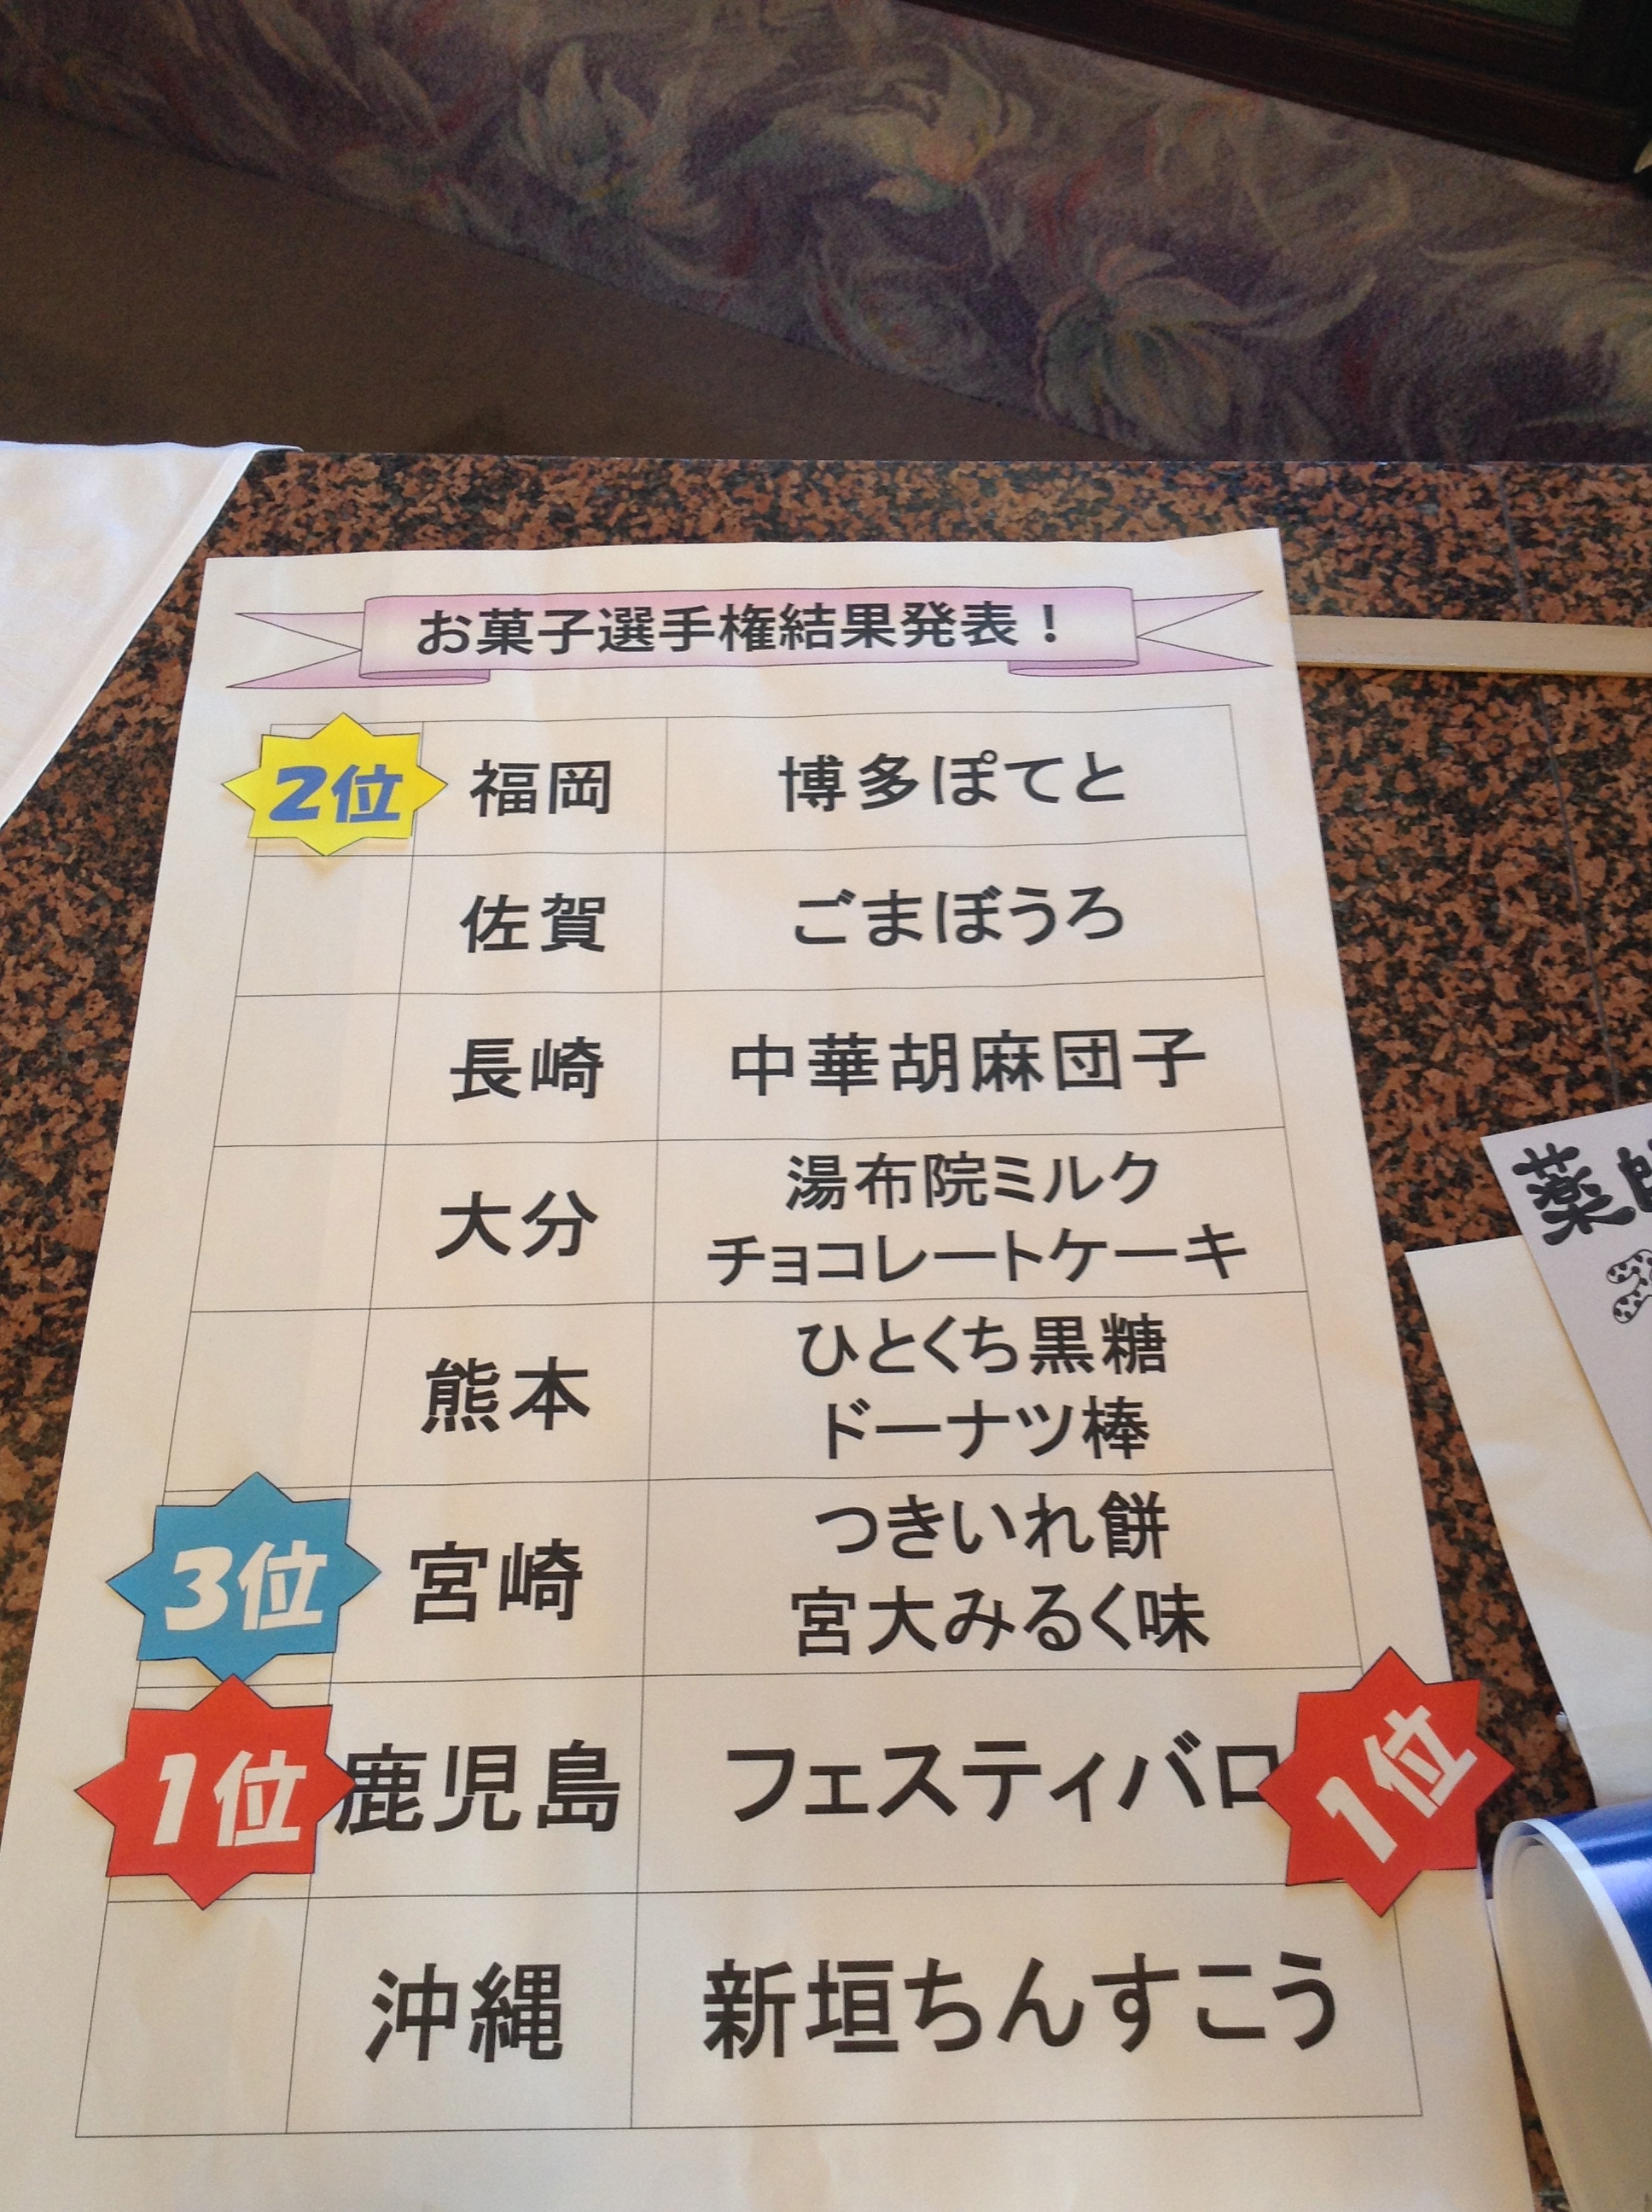 お菓子選手権結果発表！
2位 福岡 博多ぽてと
佐賀 ごまぼうろ
長崎 中華胡麻団子
大分 湯布院ミルク
チョコレートケーキ
熊本 ひとくち黒糖
ドーナツ棒
3位 宮崎 つきいれ餅
宮大みるく味
1位 鹿児島 フェスティバロ 1位
沖縄 新垣ちんすこう
薬